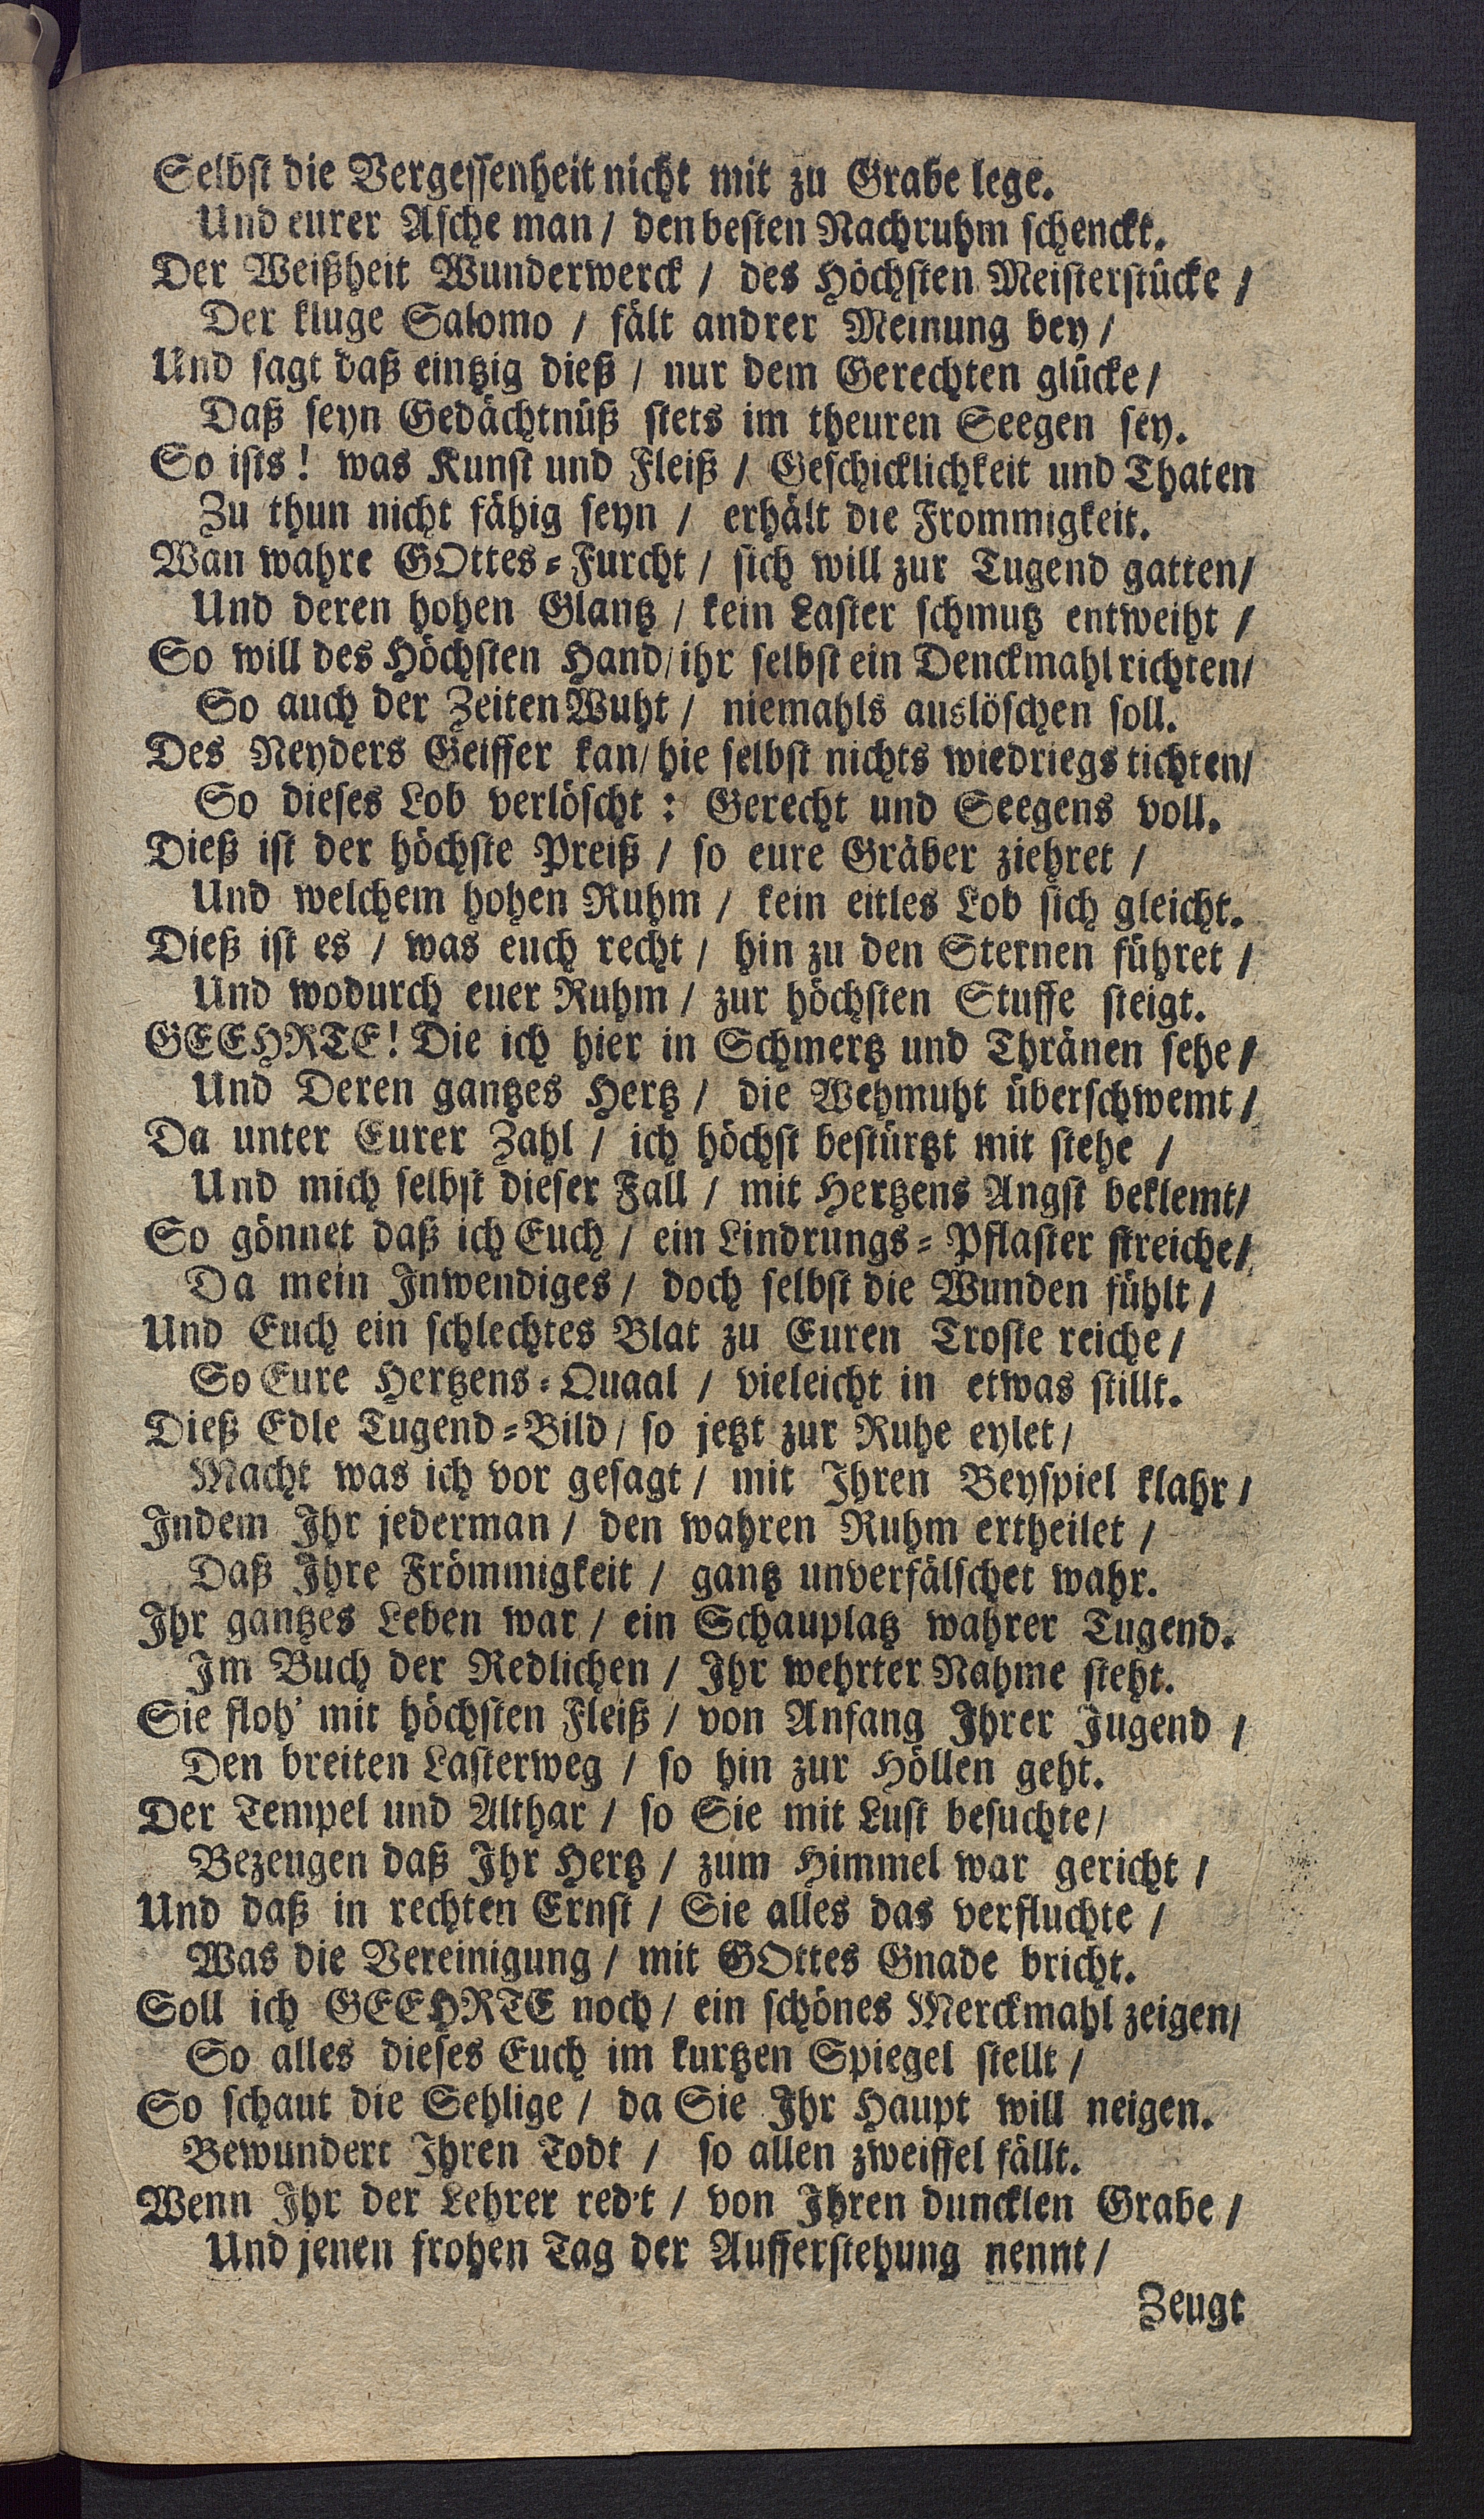 Selbst die Vergessenheit nicht mit zu Grabe lege.
Und eurer Asche man / den besten Nachruhm schenckt.
Der Weißheit Wunderwerck / des Höchsten Meisterstücke /
Der kluge Salomo / fält andrer Meinung bey /
Und sagt daß eintzig dieß / nur dem Gerechten glücke /
Daß seyn Gedächtnüß stets im theuren Seegen sey.
So ists! was Kunst und Fleiß / Geschicklichkeit und Thaten
Zu thun nicht fähig seyn / erhält die Frommigkeit.
Wan wahre GOttes-Furcht / sich will zur Tugend gatten /
Und deren hohen Glantz / kein Laster schmutz entweiht /
So will des Höchsten Hand / ihr selbst ein Denckmahl richten /
So auch der Zeiten Wuht / niemahls auslöschen soll.
Des Neyders Geiffer kan / hie selbst nichts wiedriegs tichten /
So dieses Lob verlöscht: Gerecht und Seegens voll.
Dieß ist der höchste Preiß / so eure Gräber ziehret /
Und welchem hohen Ruhm / kein eitles Lob sich gleicht.
Dieß ist es / was euch recht / hin zu den Sternen führet /
Und wodurch euer Ruhm / zur höchsten Stuffe steigt.
GEEHRTE! Die ich hier in Schmertz und Thränen sehe /
Und Deren gantzes Hertz / die Wehmuht überschwemt /
Da unter Eurer Zahl / ich höchst bestürtzt mit stehe /
Und mich selbst dieser Fall / mit Hertzens Angst beklemt /
So gönnet daß ich Euch / ein Lindrungs-Pflaster streiche /
Da mein Inwendiges / doch selbst die Wunden fühlt /
Und Euch ein schlechtes Blat zu Euren Troste reiche /
So Eure Hertzens-Quaal / vieleicht in etwas stillt.
Dieß Edle Tugend-Bild / so jetzt zur Ruhe eylet /
Macht was ich vor gesagt / mit Ihren Beyspiel klahr /
Indem Ihr jederman / den wahren Ruhm ertheilet /
Daß Ihre Frömmigkeit / gantz unverfälschet wahr.
Ihr gantzes Leben war / ein Schauplatz wahrer Tugend.
Im Buch der Redlichen / Ihr wehrter Nahme steht.
Sie floh' mit höchsten Fleiß / von Anfang Ihrer Jugend /
Den breiten Lasterweg / so hin zur Höllen geht.
Der Tempel und Althar / so Sie mit Lust besuchte /
Bezeugen daß Ihr Hertz / zum Himmel war gericht /
Und daß in rechten Ernst / Sie alles das verfluchte /
Was die Vereinigung / mit GOttes Gnade bricht.
Soll ich GEEHRTE noch / ein schönes Merckmahl zeigen /
So alles dieses Euch im kurtzen Spiegel stellt /
So schaut die Sehlige / da Sie Ihr Haupt will neigen.
Bewundert Ihren Todt / so allen zweiffel fällt.
Wenn Ihr der Lehrer red't / von Ihren duncklen Grabe /
Und jenen frohen Tag der Aufferstehung nennt /
Zeugt